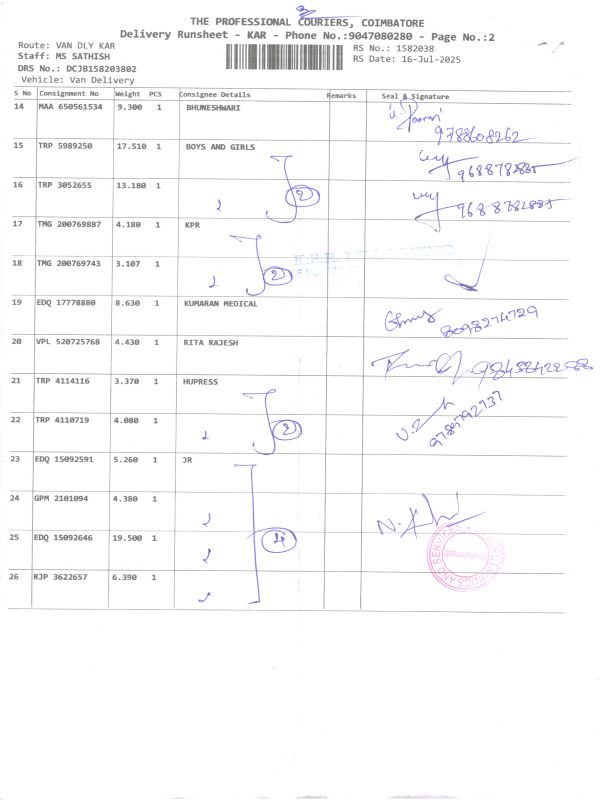 THE PROFESSIONAL COURIERS, COIMBATORE
Delivery Runsheet - KAR - Phone No.:9047080280 - Page No.:2
Route: VAN DLY KAR RS No.: 1582038
Staff: MS SATHISH RS Date: 16-Jul-2025
DRS No.: DCJB158203802
Vehicle: Van Delivery
S No Consignment No Weight PCS Consignee Details Remarks Seal & Signature
14 MAA 650561534 9.300 1 BHUNESHWARI
9788608262
15 TRP 5989250 17.510 1 BOYS AND GIRLS
9688782885
16 TRP 3052655 13.180 1 2
9688782885
17 TMG 200769887 4.180 1 KPR
18 TMG 200769743 3.107 1 2
19 EDQ 17778880 8.630 1 KUMARAN MEDICAL
8098274729
20 VPL 520725768 4.430 1 RITA RAJESH
21 TRP 4114116 3.370 1 HUPRESS
9789792737
22 TRP 4110719 4.080 1 2
23 EDQ 15092591 5.260 1 JR
24 GPM 2101094 4.380 1
25 EDQ 15092646 19.500 1 4
26 RJP 3622657 6.390 1